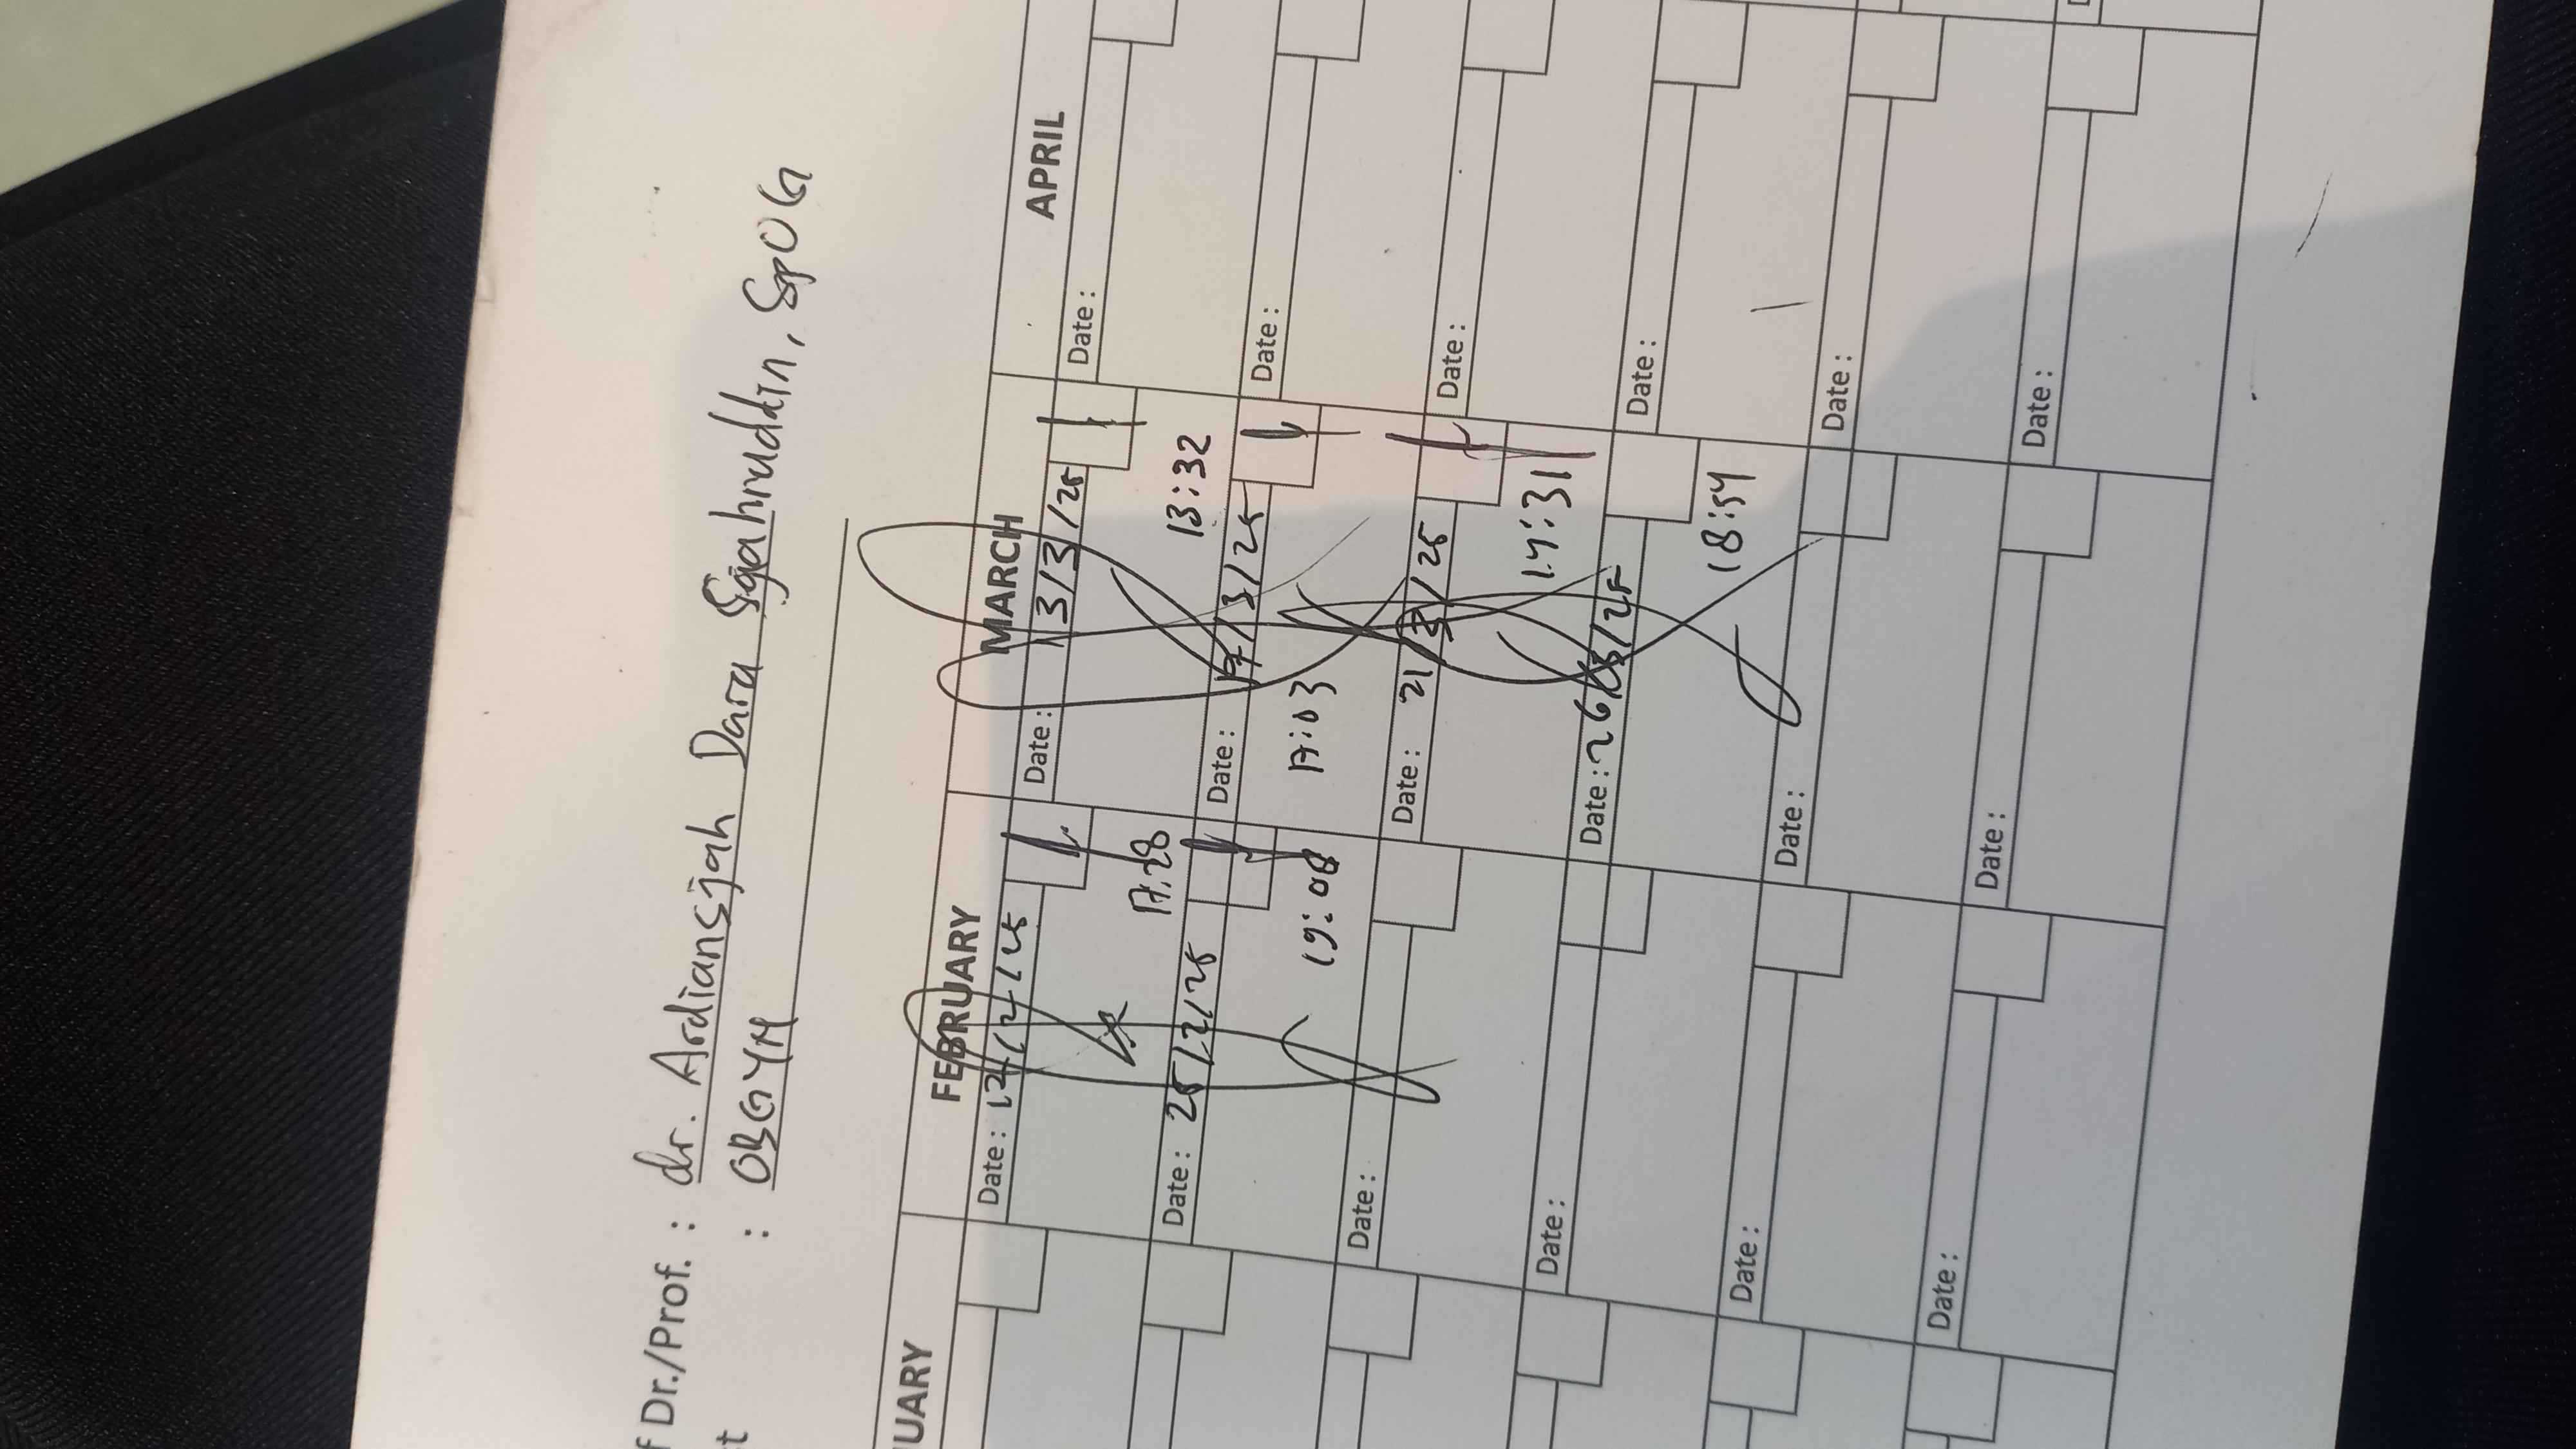 f Dr./Prof. : dr. Ardiansjah Dara Sjahruddin, SpOG
t : OBGYN
UARY FEBRUARY MARCH APRIL
Date: 12/2/25 Date: 13/3/25 Date:
17.28 13:32
Date: 25/2/25 Date: 19/3/25 Date:
19:08 17:03
Date: Date: 21/3/25 Date:
14:31
Date: Date: 26/03/25 Date:
18:54
Date: Date: Date:
Date: Date: Date: